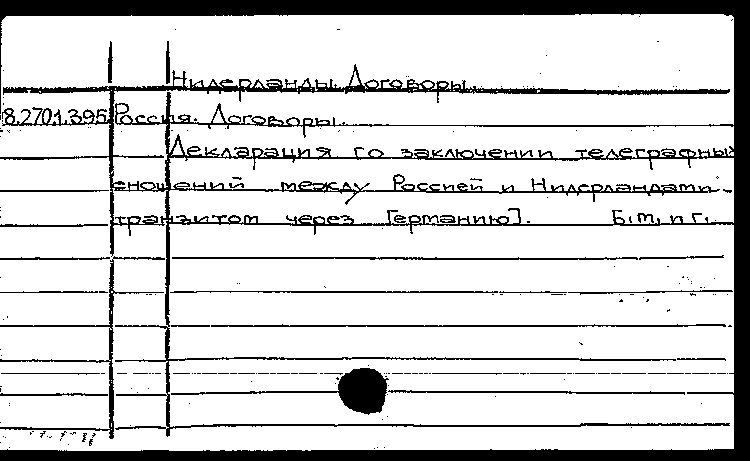 Нидерланды. Договоры.
8.2701.395 Россия. Договоры.
Декларация го заключении телеграфных
сношений между Россией и Нидерландами
транзитом через Германию]. Б.м. и г.